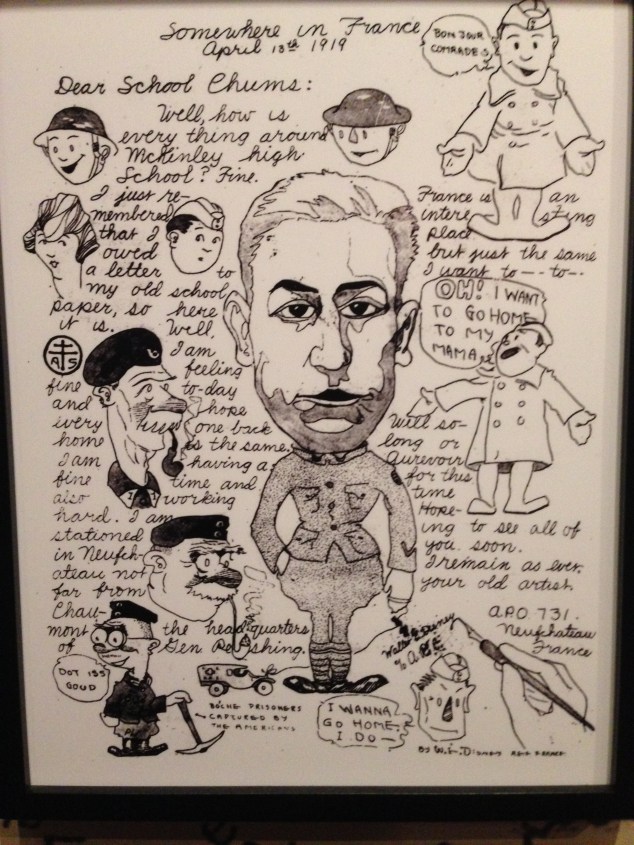 Somewhere in France
April 18th 1919
BONJOUR
COMRADES
Dear School Chums:
Well, how is
every thing around
McKinley high
School? Fine.
I just re-
membered
that I
owed
a letter to
my old school
paper, so here
it is. Well,
I am
feeling
fine to-day
and hope
every one back
home is the same.
I am having a
fine time and
also working
hard. I am
stationed
in Neufch-
ateau not
far from
Chau-
mont the headquarters
of Gen Pershing.
France is an
interesting
place
but just the same
I want to --- to--.
OH! I WANT
TO GO HOME
TO MY
MAMA
Well so-
long or
Aurevoir
for this
time
Hope-
ing to see all of
you soon.
I remain as ever,
your old artist.
A.P.O. 731.
Neufchateau
France
A S
DOT ISS
GOOD
BOCHE PRISONERS
CAPTURED BY
THE AMERICANS
I WANNA
GO HOME.
I DO—
Walter Disney
A.E.F.
BY W.E. DISNEY